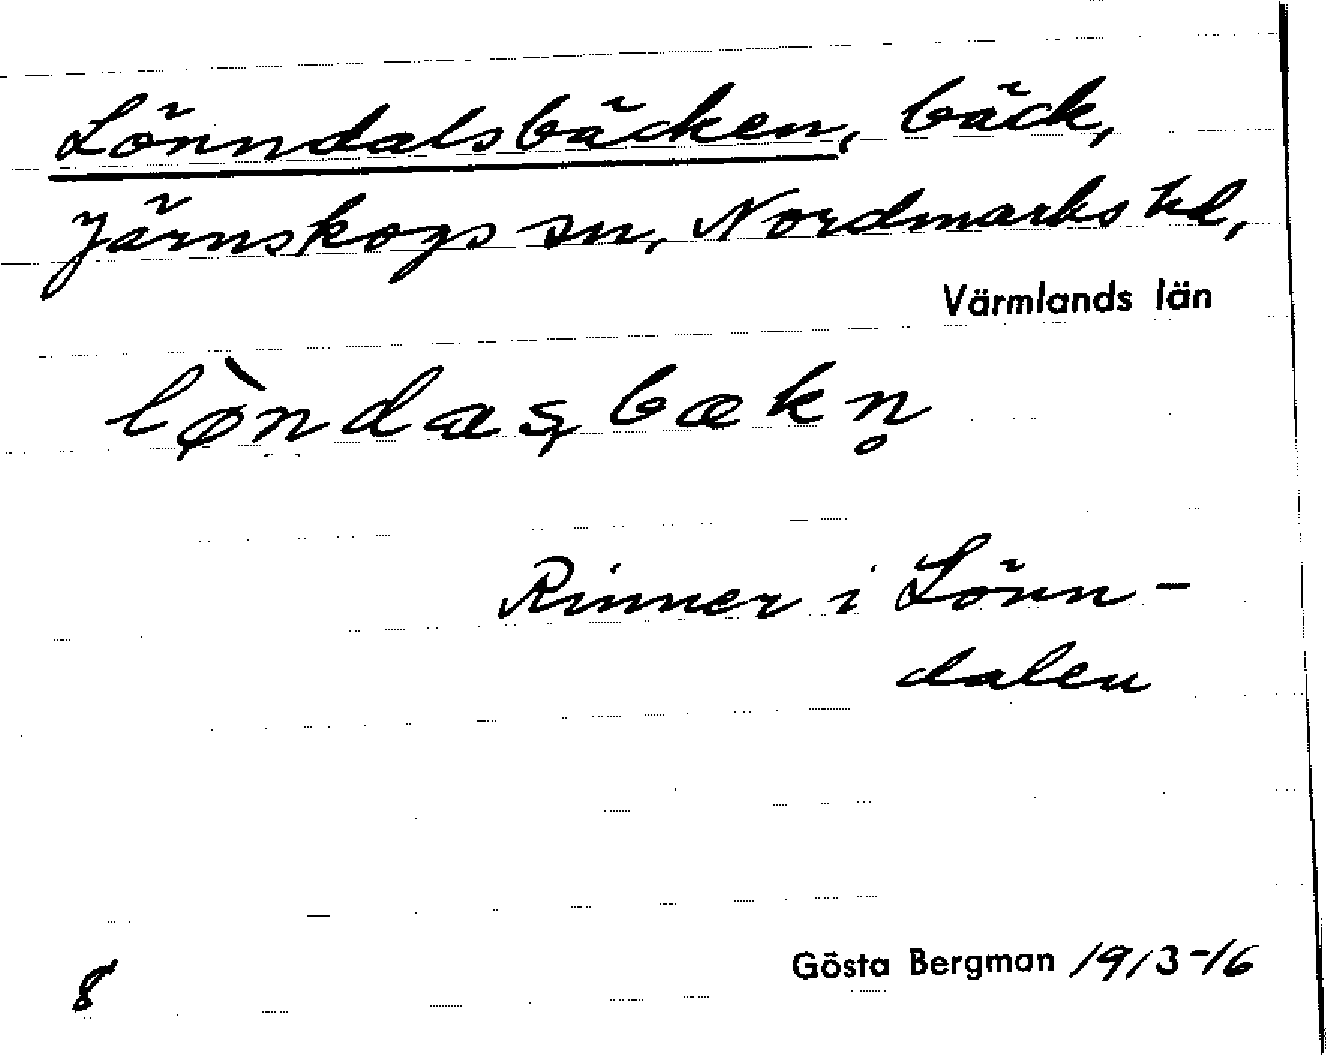 Lönndalsbäcken, bäck,
Järnskogs sn, Nordmarks hd,
Värmlands län
lø̀ndaʂbækn̥
Rinner i Lönn-
dalen
Gösta Bergman 1913-16
8